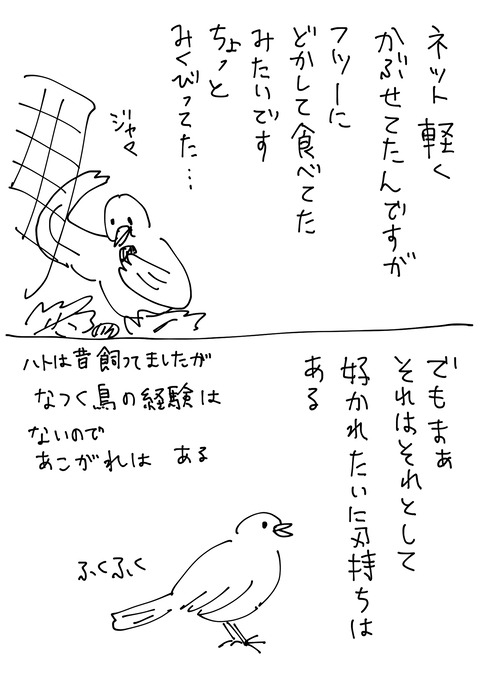 ネット軽く
かぶせてたんですが
フツーに
どかして食べてた
みたいです
ちょっと
みくびってた…
ジャマ
でもまぁ
それはそれとして
好かれたい気持ちは
ある
ハトは昔飼ってましたが
なつく鳥の経験は
ないので
あこがれは ある
ふくふく